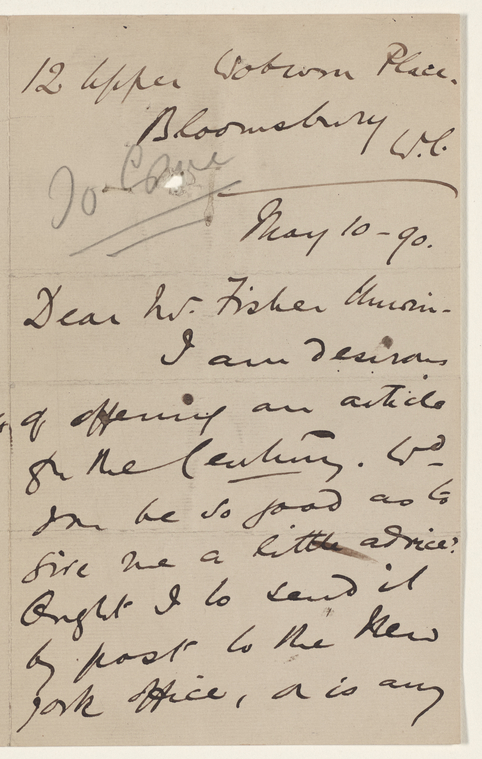 12 Upper Woburn Place.
Bloomsbury
W.C.
May 10 - 90.
Dear Mr. Fisher Unwin -
I am desirous
of offering an article
for the Century. Wd
you be so good as to
give me a little advice?
Ought I to send it
by post to the New
York Office, or is any